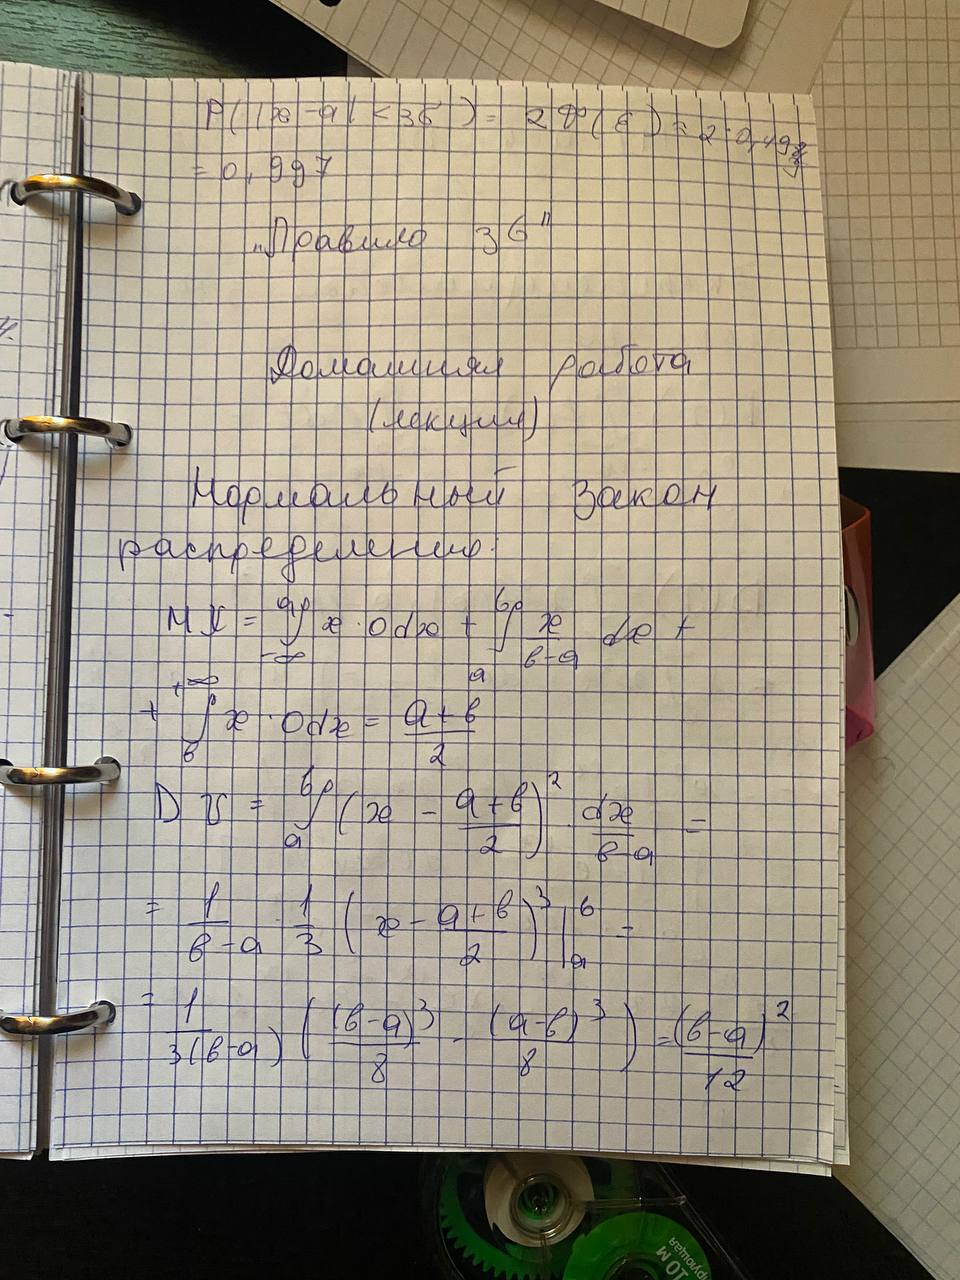 P(|x-a|<3б) = 2Ф(ε) = 2·0,499
= 0,997
„Правило 3б"
Домашняя работа
(лекция)
Нормальный закон
распределения:
MX = ∫_{-∞}^{a} x·0dx + ∫_{a}^{b} x/(b-a) dx +
+ ∫_{b}^{+∞} x·0dx = (a+b)/2
DX = ∫_{a}^{b} (x - (a+b)/2)² · dx/(b-a) =
= 1/(b-a) · 1/3 (x - (a+b)/2)³ |_{a}^{b} =
= 1/(3(b-a)) ((b-a)³/8 - (a-b)³/8) = (b-a)²/12
10 м